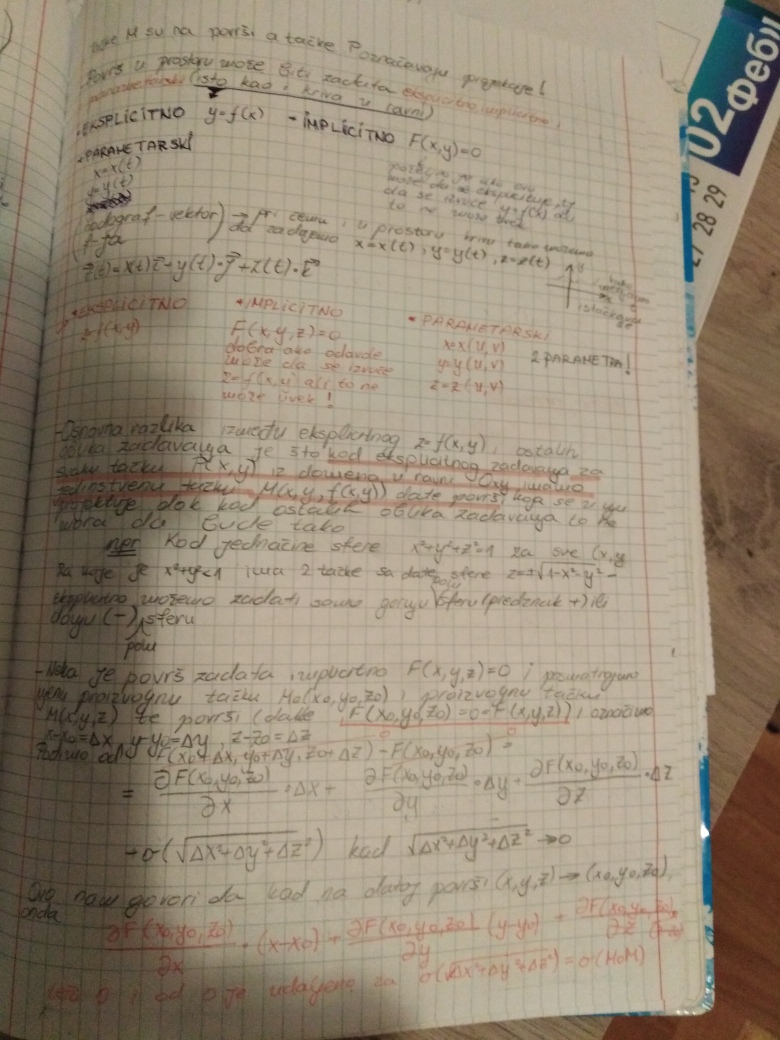 tačke M su na površi a tačke P označavaju projekcije!
Površ u prostoru može biti zadata eksplicitno, implicitno,
parametarski (isto kao i kriva u ravni)
• EKSPLICITNO y=f(x) • IMPLICITNO F(x,y)=0
• PARAMETARSKI
x=x(t)
y=y(t)
može da se
da se izvuče y=f(x) ali
to ne može uvek
(hodograf-vektor) → pri čemu i u prostoru krivu tako možemo
f-ja da zadajemo x=x(t), y=y(t), z=z(t)
r(t)=x(t)·i+y(t)·j+z(t)·k
• EKSPLICITNO • IMPLICITNO • PARAMETARSKI
z=f(x,y) F(x,y,z)=0 x=x(u,v)
dobra ako odavde y=y(u,v) 2 PARAMETRA!
može da se izvuče z=z(u,v)
z=f(x,y) ali to ne
može uvek!
-Osnovna razlika između eksplicitnog z=f(x,y) i ostalih
oblika zadavanja je što kod eksplicitnog zadavanja za
svaku tačku P(x,y) iz domena u ravni Oxy imamo
jedinstvenu tačku M(x,y,f(x,y)) date površi koja se u nju
projektuje dok kod ostalih oblika zadavanja to ne
mora da bude tako
npr Kod jednačine sfere x²+y²+z²=1 za sve (x,y)
za koje je x²+y²<1 ima 2 tačke sa date sfere z=±√1-x²-y² -
eksplicitno možemo zadati samo gornju polu sferu (predznak +) ili
donju (-) sferu
polu
-Neka je površ zadata implicitno F(x,y,z)=0 i posmatrajmo
njenu proizvoljnu tačku M0(x0,y0,z0) i proizvoljnu tačku
M(x,y,z) te površi (dakle F(x0,y0,z0)=0=F(x,y,z)) i označimo
x-x0=Δx, y-y0=Δy, z-z0=Δz
Pođimo od F(x0+Δx, y0+Δy, z0+Δz)-F(x0,y0,z0)=
= ∂F(x0,y0,z0)/∂x ·Δx + ∂F(x0,y0,z0)/∂y ·Δy + ∂F(x0,y0,z0)/∂z ·Δz
+o(√Δx²+Δy²+Δz²) kad √Δx²+Δy²+Δz² →0
Ovo nam govori da kad na datoj površi (x,y,z)→(x0,y0,z0),
onda
∂F(x0,y0,z0)/∂x ·(x-x0) + ∂F(x0,y0,z0)/∂y (y-y0) + ∂F(x0,y0,z0)/∂z
0 i od 0 je udaljeno za o(√Δx²+Δy²+Δz²)=o(M0M)
02 Фебр
27 28 29